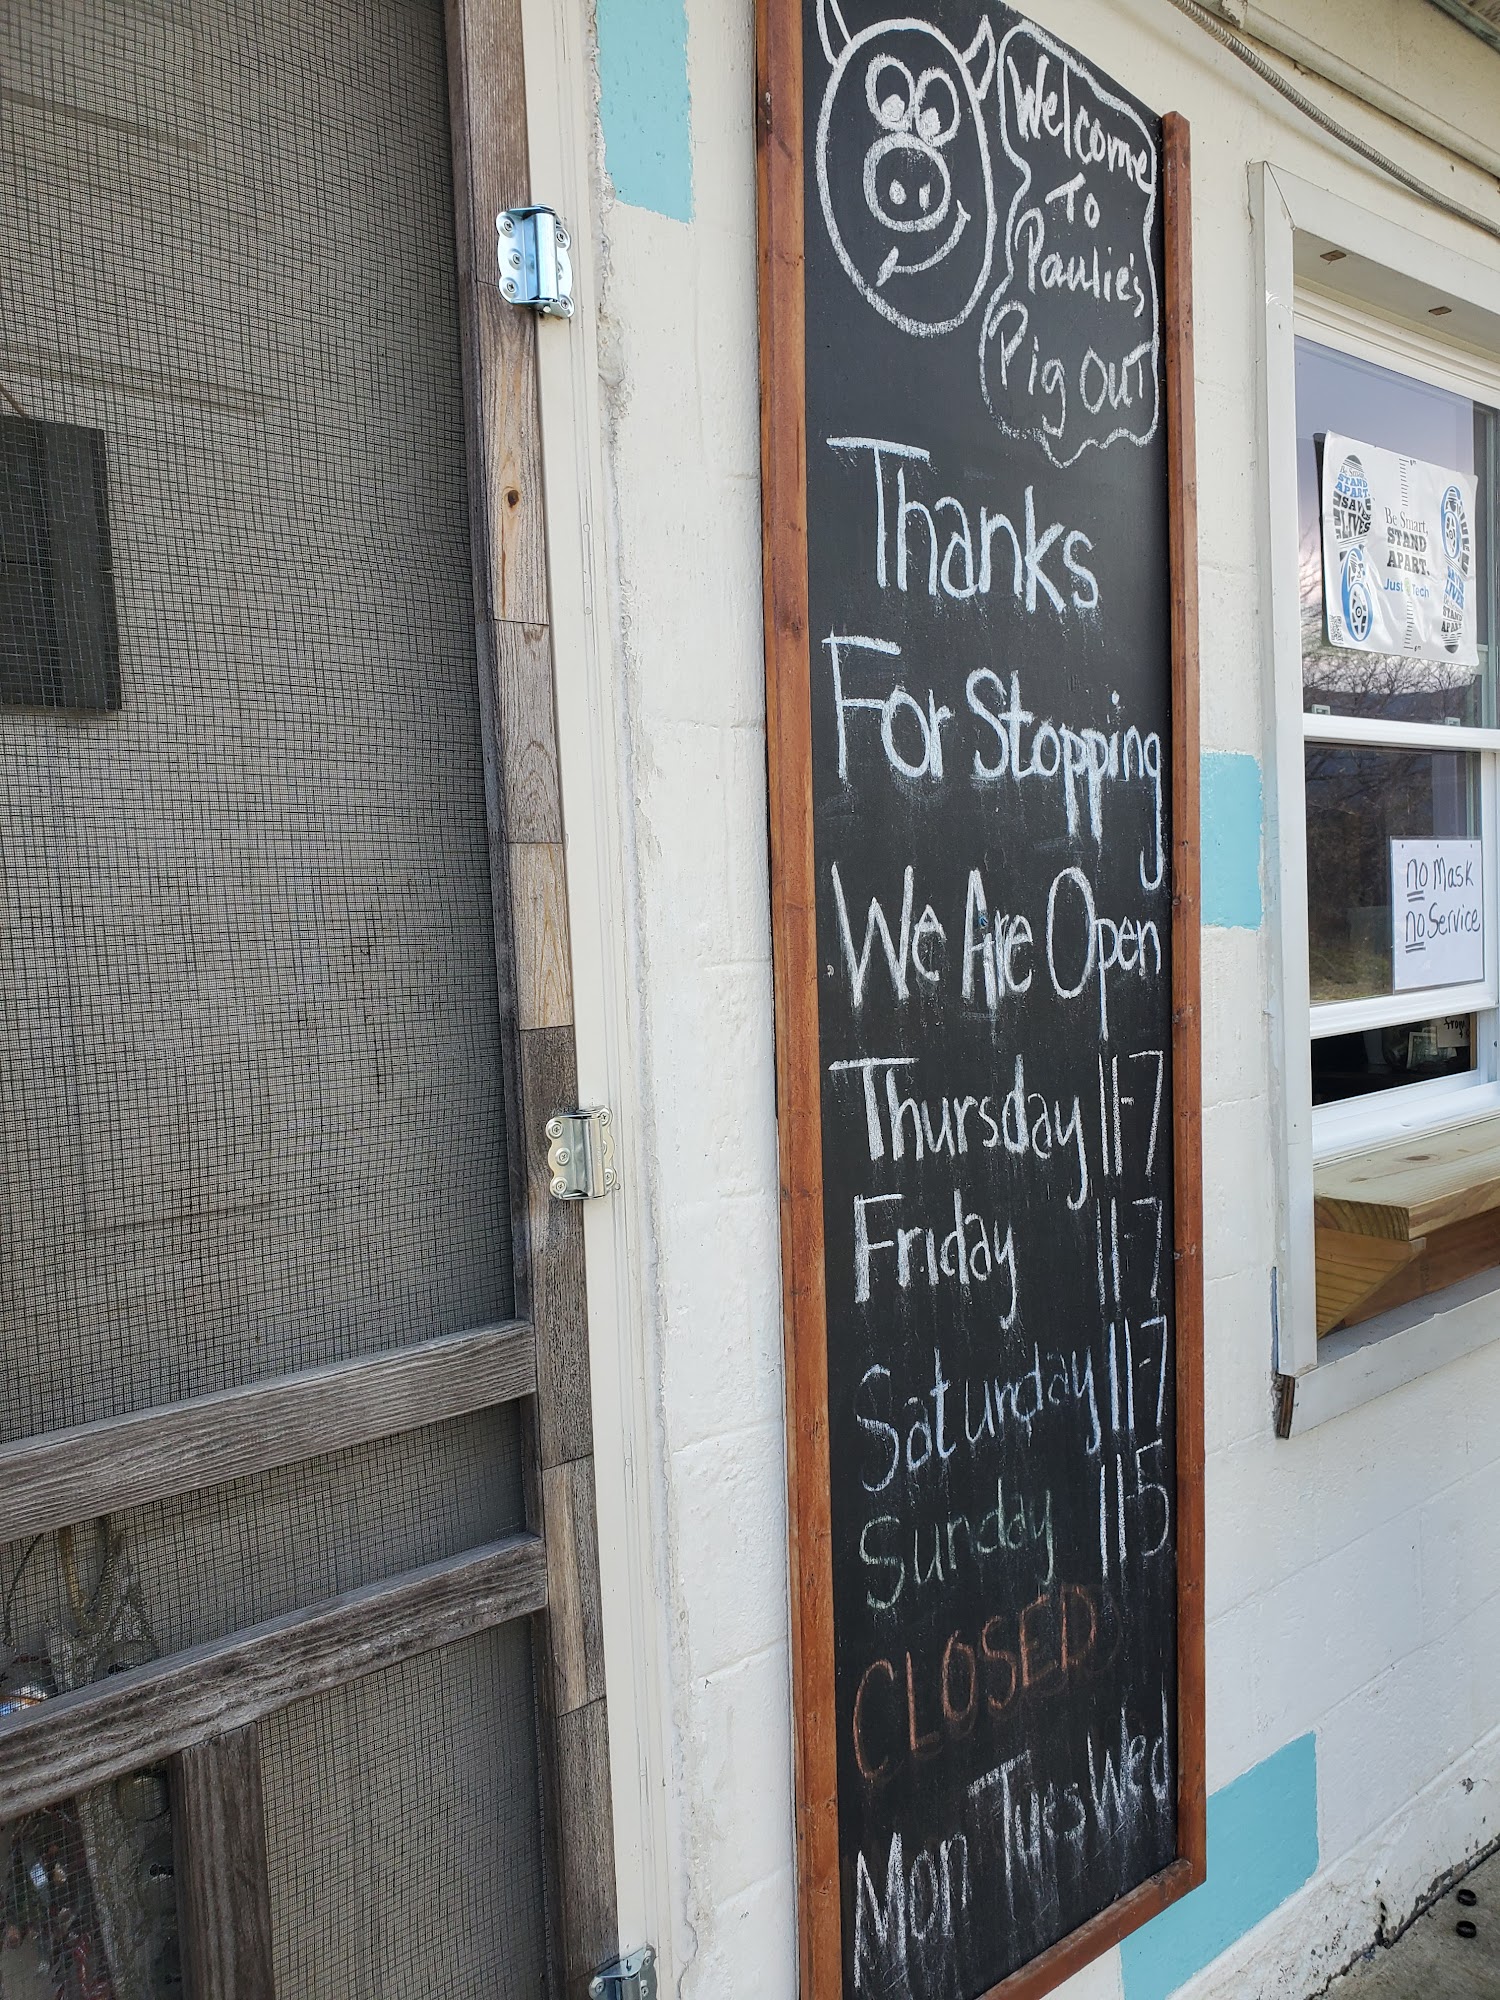 Welcome
To
Paulie's
Pig OUT
Thanks
For Stopping
We Are Open
Thursday 11-7
Friday 11-7
Saturday 11-7
Sunday 11-5
CLOSED
Mon Tues Wed
Be Smart,
STAND
APART.
Just Tech
no Mask
no Service